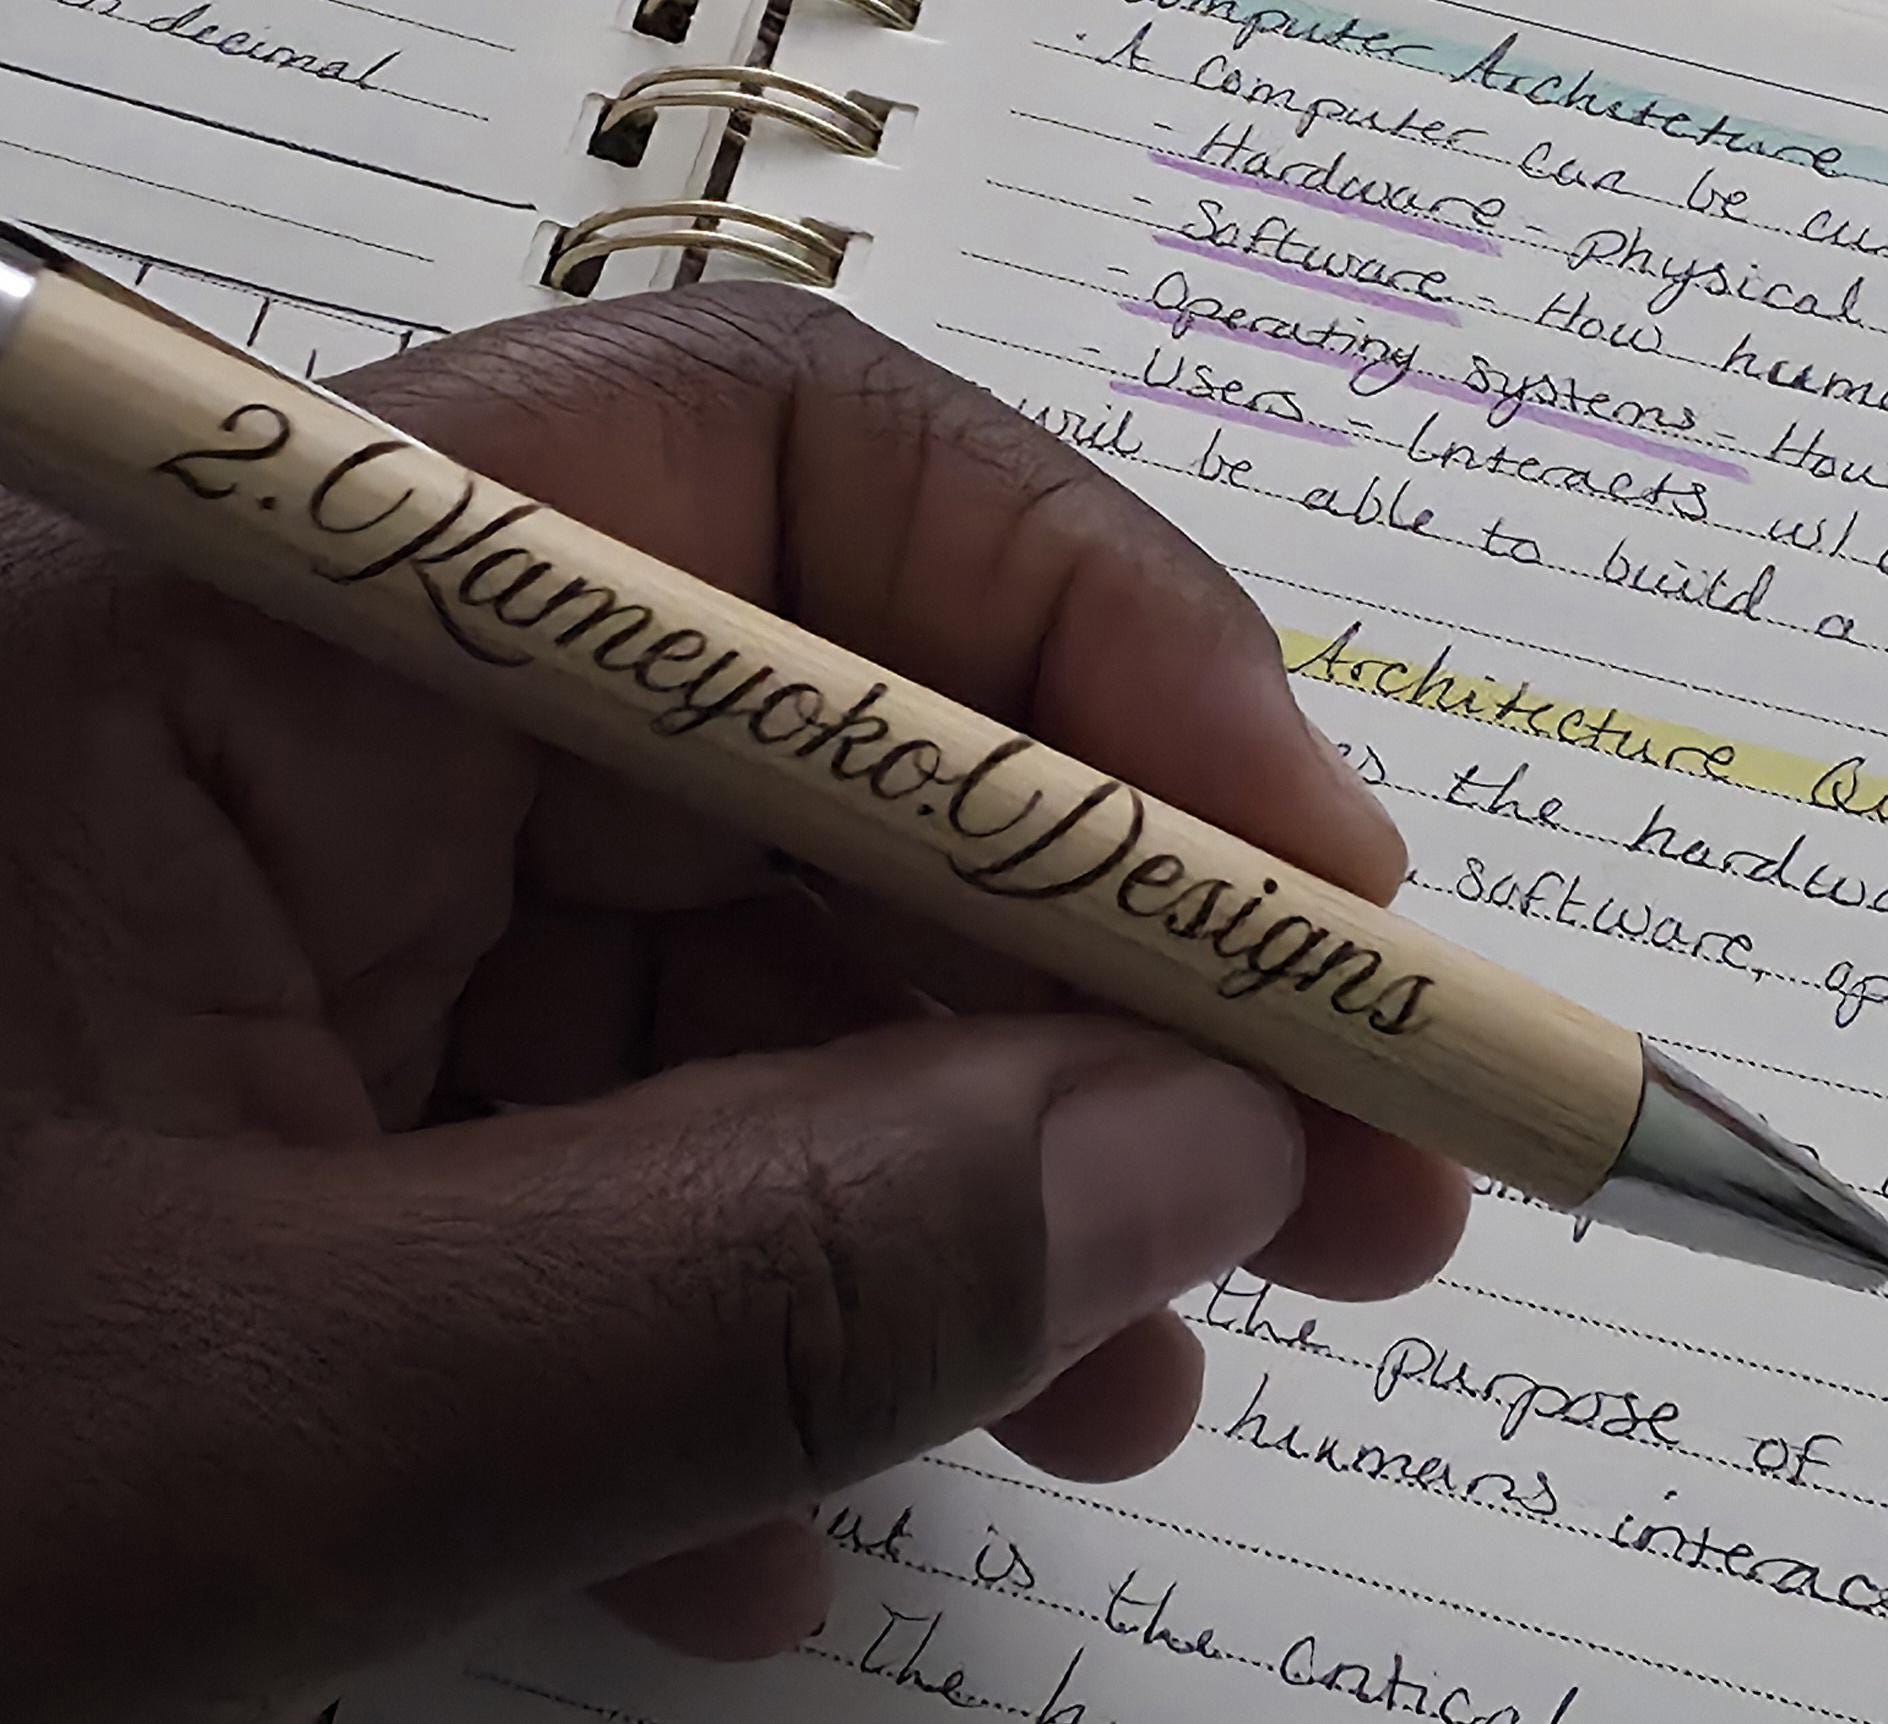 decimal
Computer Architeture
· A computer can be
- Hardware - Physical
- Software - How
- Operating systems - How
- Users - Interacts
will be able to build a
Architecture
the
software,
the purpose of
humans
is the critical
The
2.Kameyoko.Designs